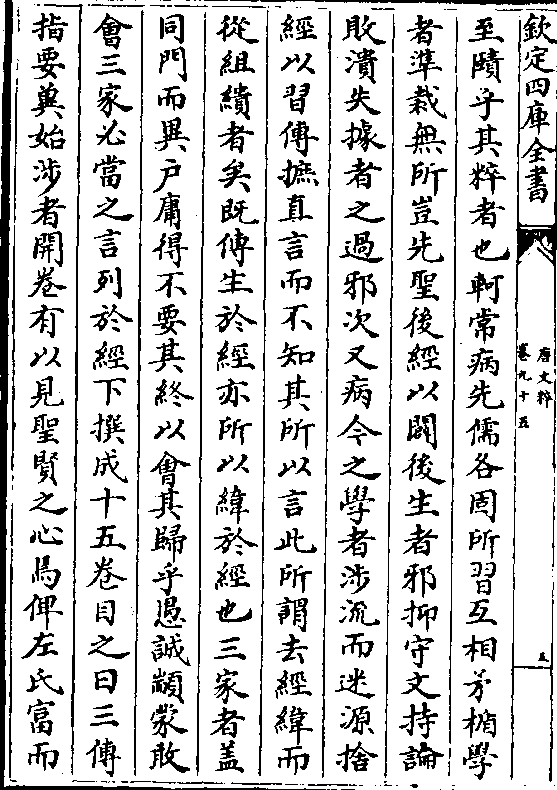 欽定四庫全書
唐文粹
卷九十五
五
至賾乎其粹者也軻常病先儒各固所習互相矛楯學
者準裁無所豈先聖後經以闢後生者邪抑守文持論
敗潰失據者之過邪次又病今之學者涉流而迷源捨
經以習傳摭直言而不知其所以言此所謂去經緯而
從組繢者矣既傳生於經亦所以緯於經也三家者蓋
同門而異户庸得不要其終以會其歸乎愚誠顓蒙敢
會三家必當之言列於經下撰成十五卷目之曰三傳
指要冀始涉者開卷有以見聖賢之心焉俾左氏富而